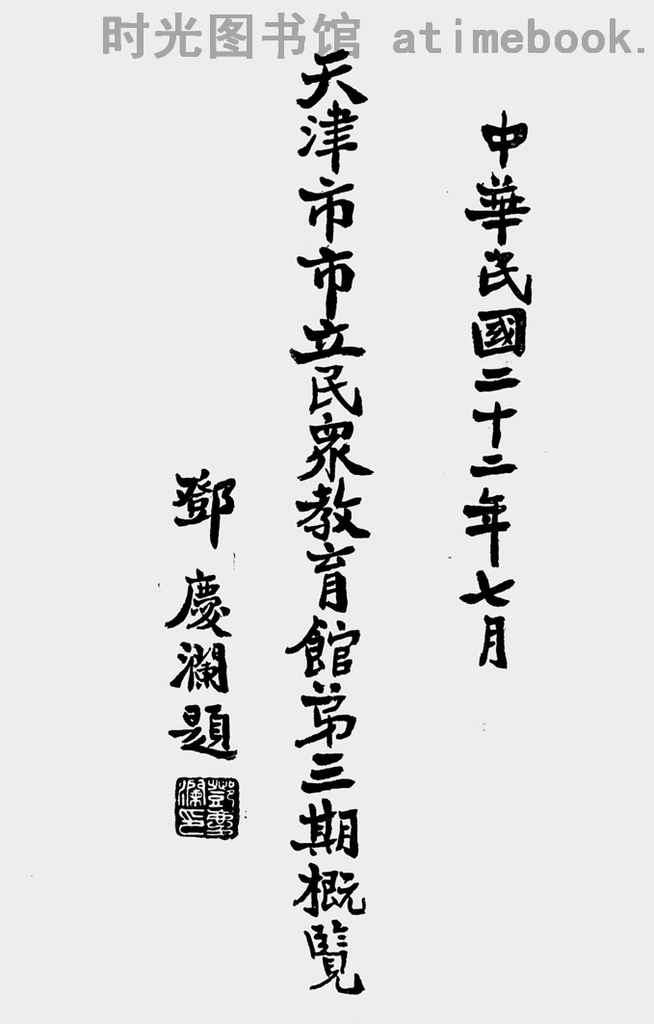 时光图书馆 atimebook.
中華民國二十二年七月
天津市市立民眾教育館第三期概覽
鄧慶瀾題
鄧慶瀾印